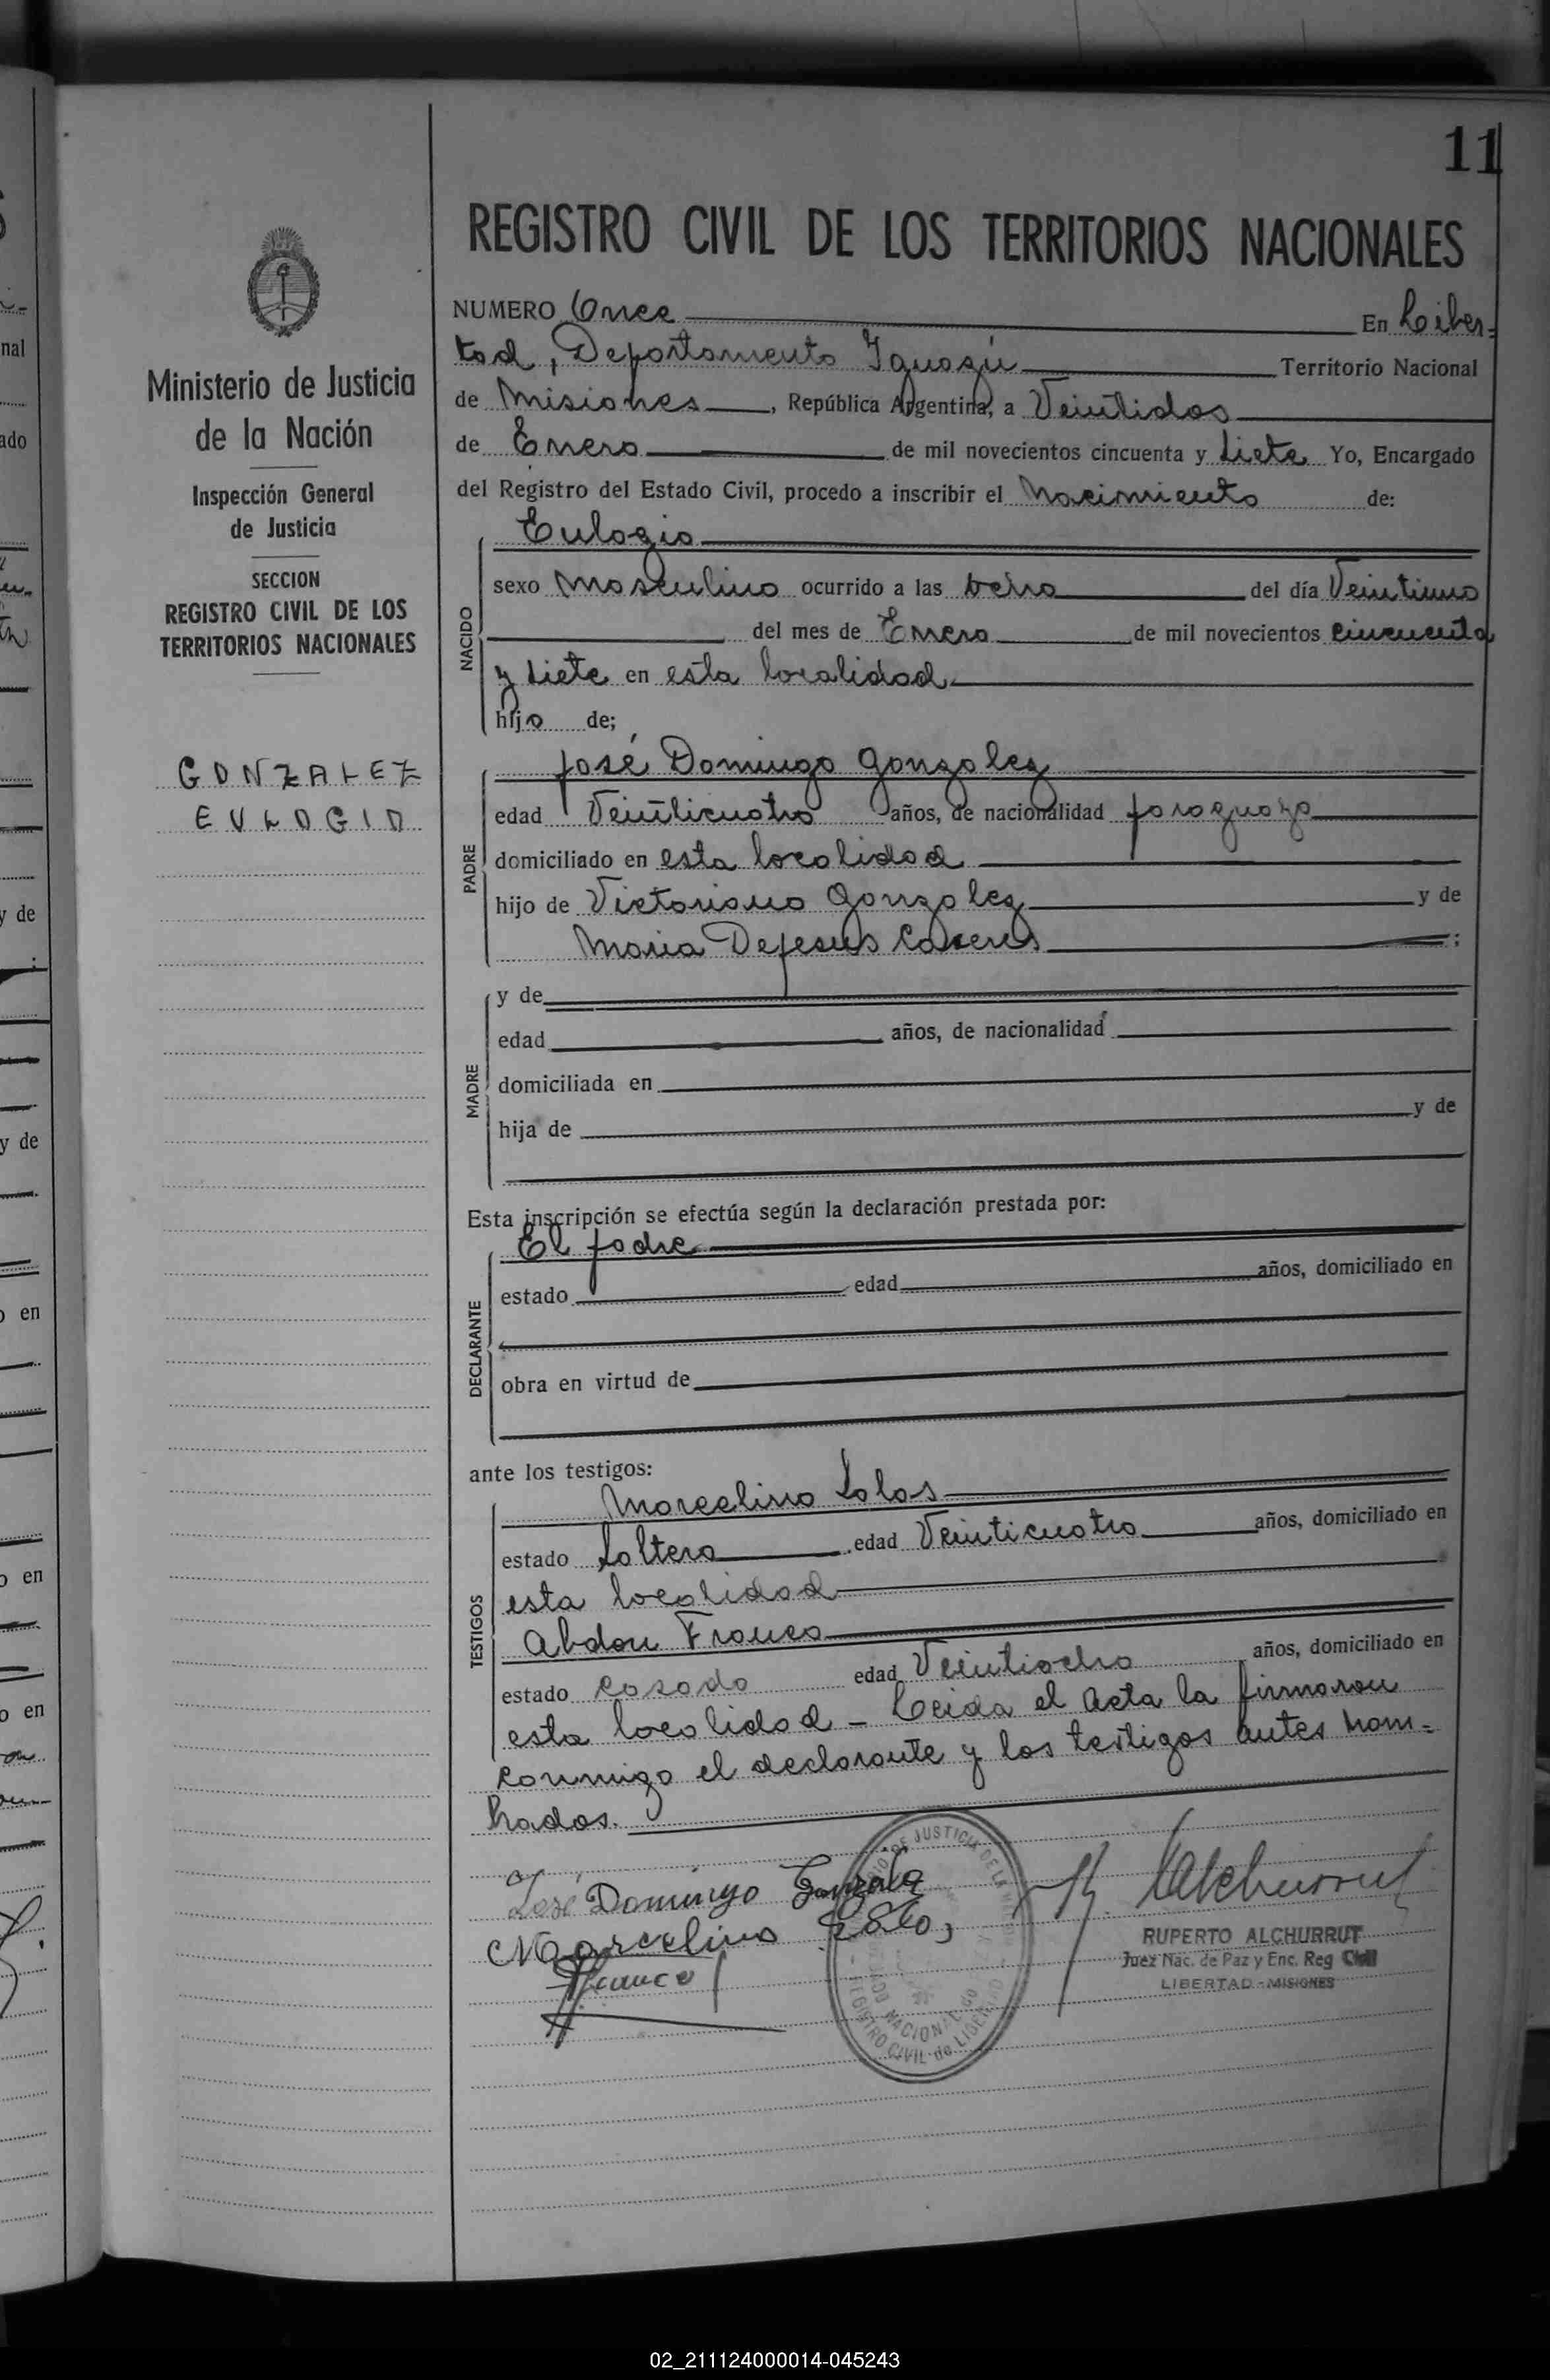 11
REGISTRO CIVIL DE LOS TERRITORIOS NACIONALES
Ministerio de Justicia
de la Nación
Inspección General
de Justicia
SECCION
REGISTRO CIVIL DE LOS
TERRITORIOS NACIONALES
GONZALEZ
EULOGIO
NUMERO Once En Liber-
tad, Departamento Iguazú Territorio Nacional
de Misiones, República Argentina, a Veintidos
de Enero de mil novecientos cincuenta y siete Yo, Encargado
del Registro del Estado Civil, procedo a inscribir el Nacimiento de:
NACIDO
Eulogio
sexo Masculino ocurrido a las del día Veintiuno
del mes de Enero de mil novecientos cincuenta
y siete en esta localidad
hijo de;
PADRE
José Domingo Gonzalez
edad Veinticuatro años, de nacionalidad paraguayo
domiciliado en esta localidad
hijo de Victoriano Gonzalez y de
Maria Dejesus Caceres ;
MADRE
y de
edad años, de nacionalidad
domiciliada en
hija de y de
Esta inscripción se efectúa según la declaración prestada por:
DECLARANTE
El padre
estado edad años, domiciliado en
obra en virtud de
ante los testigos:
TESTIGOS
Marcelino Lolas
estado Soltero edad Veinticuatro años, domiciliado en
esta localidad
Abdon Franco
estado casado edad Veintiocho años, domiciliado en
esta localidad - Leida el Acta la firmaron
conmigo el declarante y los testigos antes nom-
brados.
José Domingo Gonzalez
Marcelino
Franco
RUPERTO ALCHURRUT
Juez Nac. de Paz y Enc. Reg Civil
LIBERTAD - MISIONES
JUSTICIA DE LA
NACIONAL de
REGISTRO CIVIL de LIBERTAD
nal
ado
y de
y de
o en
o en
o en
02_211124000014-045243